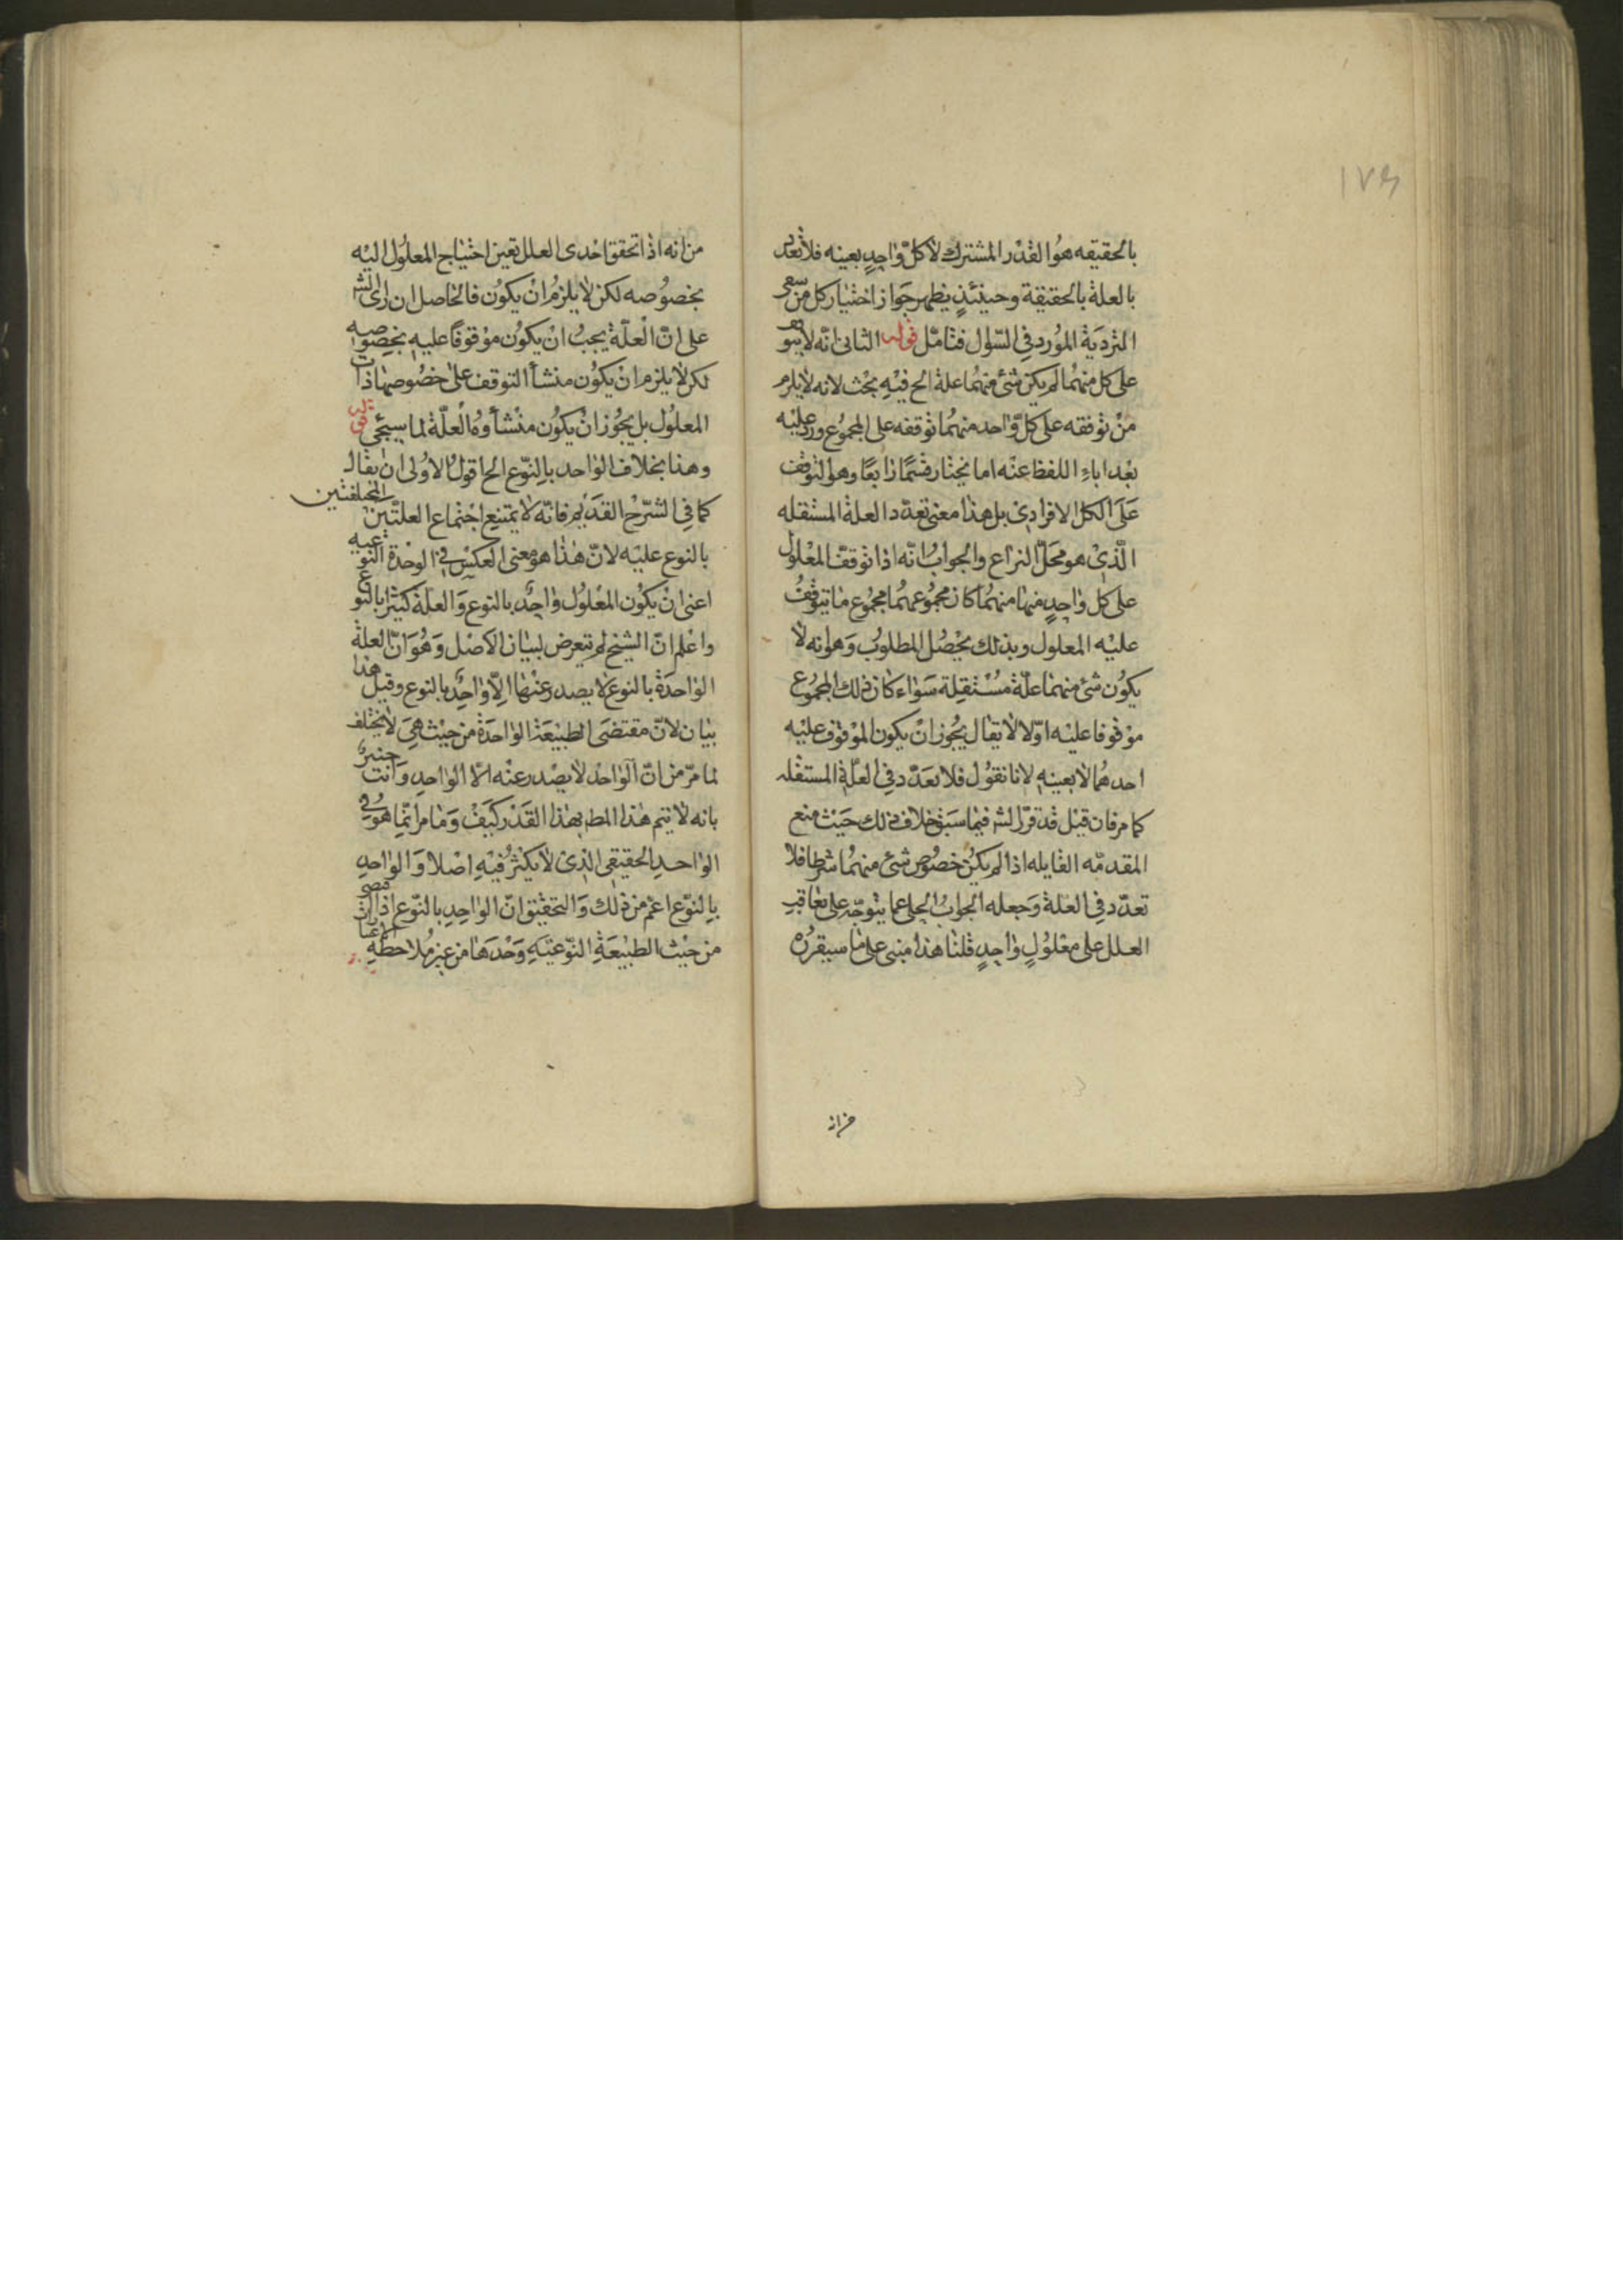 ١٧٤
بالحقيقه هو القدر المشترك لا كل واحد بعينه فلا تعدد
بالعلة بالحقيقة وحينئذ يظهر جواز اختيار كل من شقى
الترديد المورد فى السؤال فتامل قوله الثانى انه لا يتوقف
على كل منهما لم يكن شئ منهما علة الخ فيه بحث لانه لا يلزم
من توقفه على كل واحد منهما توقفه على المجموع ورد عليه
بعد اباء اللفظ عنه اما نختار قسما رابعا وهو التوقف
على الكل الافرادى بل هذا معنى تعدد العلة المستقله
الذى هو محل النزاع والجواب انه اذا توقف المعلول
على كل واحد منها منهما كان مجموعهما مجموع ما يتوقف
عليه المعلول وبذلك يحصل المطلوب وهو انه لا
يكون شئ منهما علة مستقلة سواء كان ذلك المجموع
موقوفا عليه اولا لا يقال يجوز ان يكون الموقوف عليه
احدهما لا بعينه لانا نقول فلا تعدد فى العلة المستقله
كما مر فان قيل قد قرر الشر فيما سبق خلاف ذلك حيث منع
المقدمه القايله اذا لم يكن خصوص شئ منهما شرطا فلا
تعدد فى العلة وجعله الجواب الجلى عما يتوجه على تعاقب
العلل على معلول واحد قلنا هذا مبنى على ما سيقرره
من انه
من انه اذا تحقق احدى العلل تعين احتياج المعلول اليه
بخصوصه لكن لا يلزم ان يكون فالحاصل ان راى الشر
على ان العلة يجب ان يكون موقوفا عليه بخصوصه
لكن لا يلزم ان يكون منشأ التوقف على خصوصها ذات
المعلول بل يجوز ان يكون منشأوه العلة لما سيجئ قوله
وهذا بخلاف الواحد بالنوع الخ اقول الاولى ان يقال
كما فى الشرح القديم فانه لا يمتنع اجتماع العلتين المختلفتين
بالنوع عليه لان هذا هو معنى العكس فى الوحدة النوعيه
اعنى ان يكون المعلول واحد بالنوع والعلة كثيرا بالنوع
واعلم ان الشيخ لم يتعرض لبيان الاصل وهو ان العلة
الواحدة بالنوع لا يصدر عنها الا واحد بالنوع وقيل هذا
بيان لان مقتضى الطبيعة الواحدة من حيث هى لا يختلف
لما مر من ان الواحد لا يصدر عنه الا الواحد وانت خبير
بانه لا يتم هذا المط بهذا القدر كيف وما مر انما هو فى
الواحد الحقيقى الذى لا يكثر فيه اصلا والواحد
بالنوع اعم من ذلك والتحقيق ان الواحد بالنوع اذا
من حيث الطبيعة النوعية وحدها من غير ملاحظة